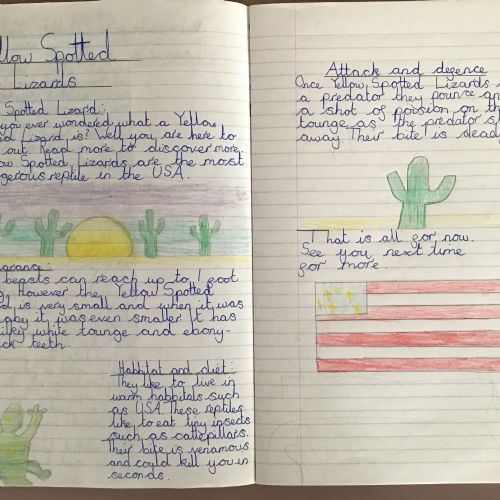 llow Spotted
Lizards
Spotted Lizard:
you ever wondered what a Yellow
ed Lizard is? Well you are here to
out. Read more to discover more.
ow Spotted Lizards are the most
gerous reptile in the USA.
arance:
beasts can reach up to 1 foot
However the Yellow Spotted
d is very small and when it was
baby it was even smaller. It has
ilky white tounge and ebony-
ck teeth.
Habitat and diet:
They like to live in
warm habbitals such
as USA. These reptiles
like to eat tiny insects
such as catterpillars.
Their bite is venamous
and could kill you in
seconds.
Attack and defence
Once Yellow Spotted Lizards s
a predator they pounce an
a shot of poision on th
tounge as the predator s
away. Their bite is deadl
That is all for now.
See you next time
for more.